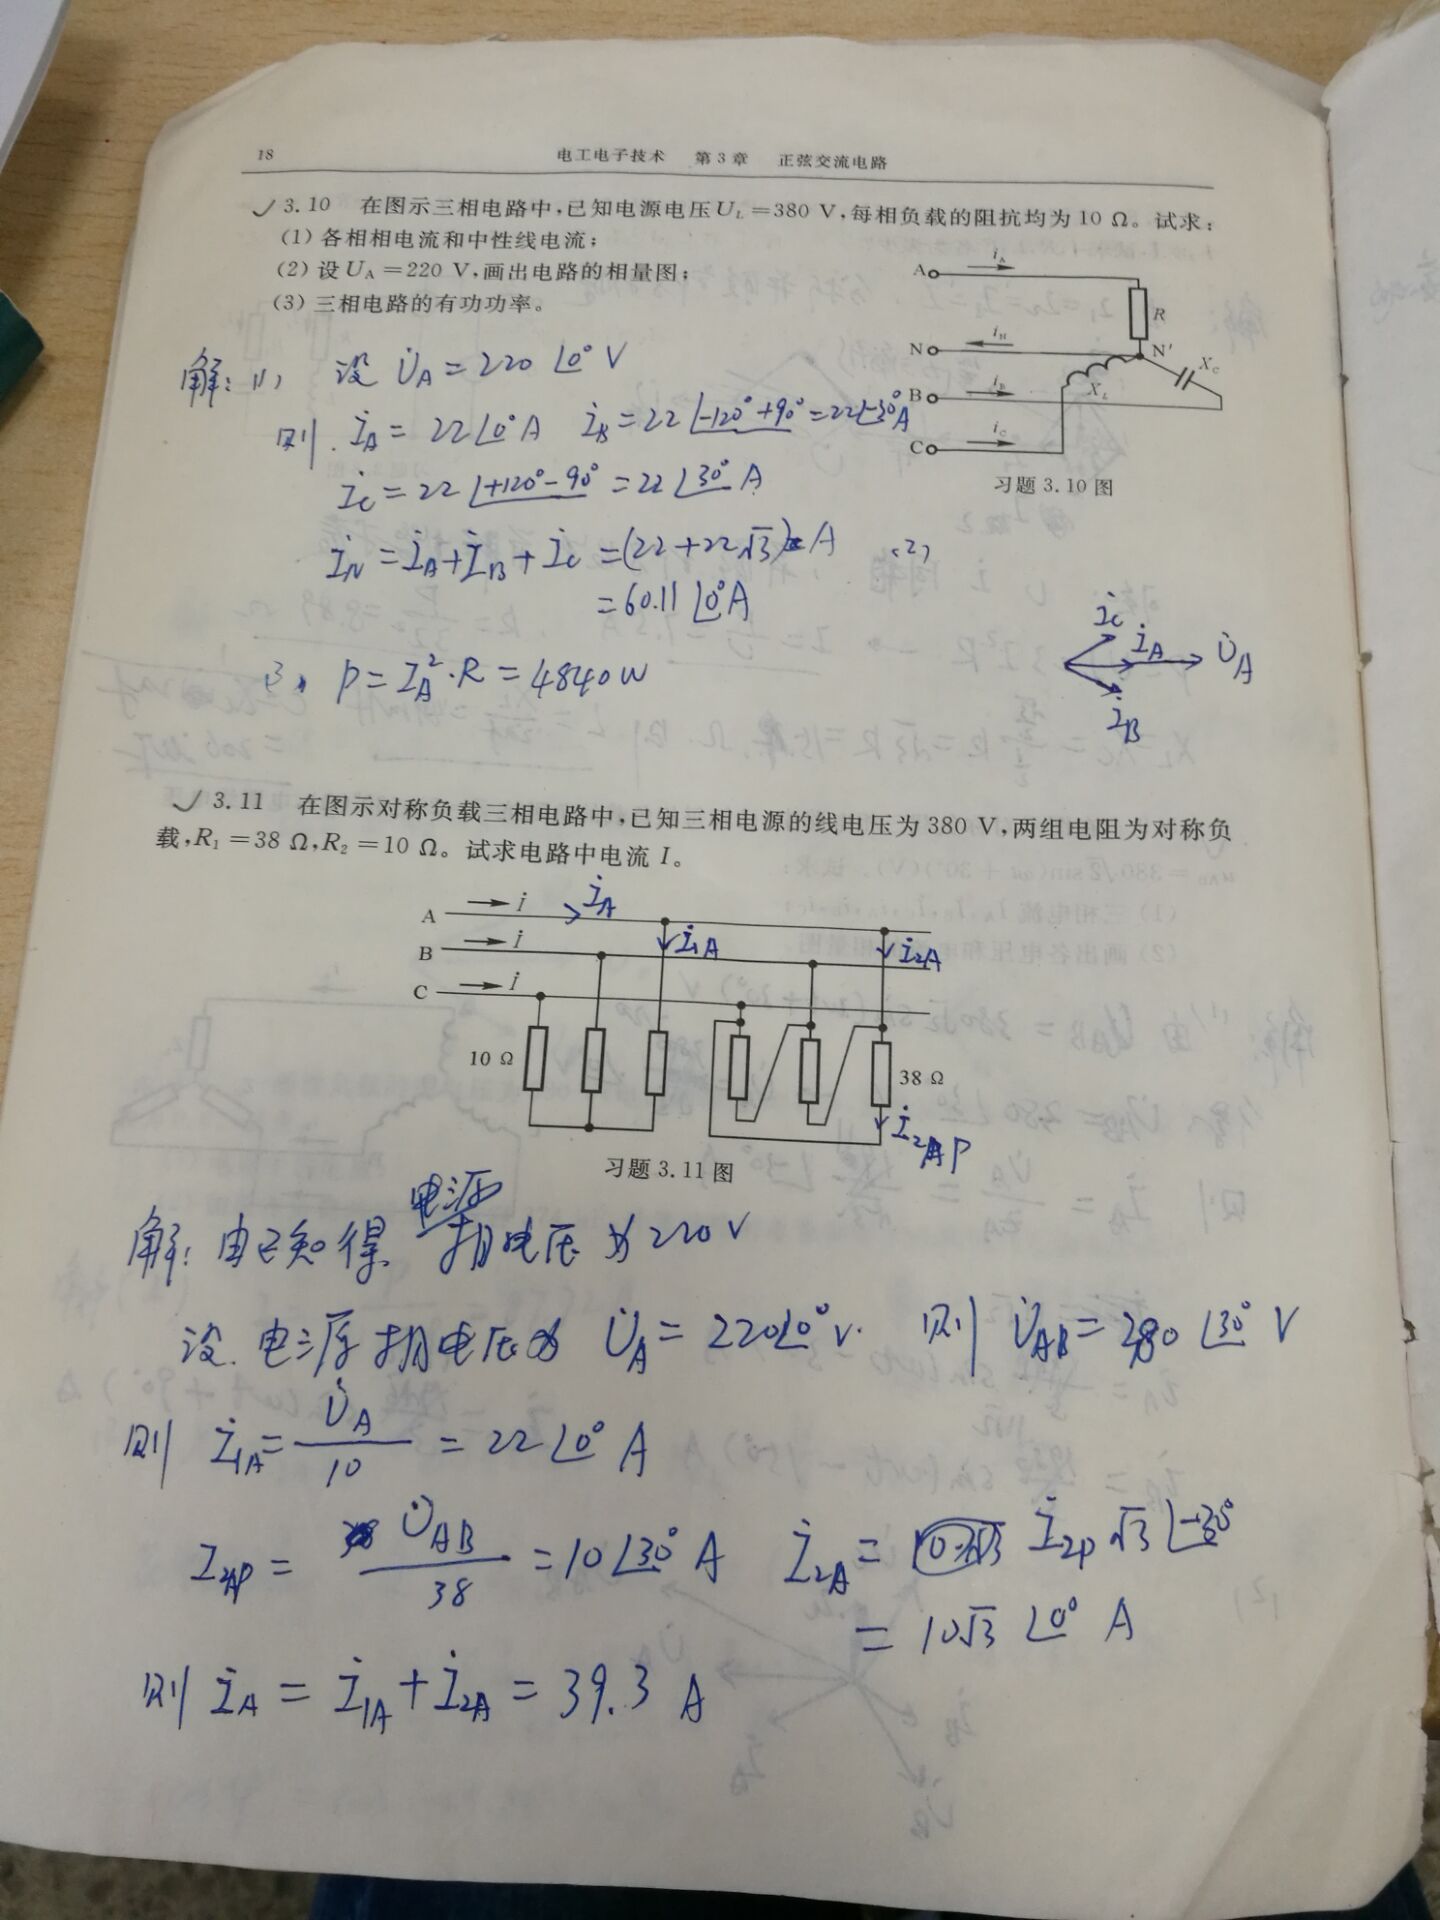 18
电工电子技术 第3章 正弦交流电路
✓ 3.10 在图示三相电路中,已知电源电压U_L=380 V,每相负载的阻抗均为10 Ω。试求:
(1) 各相相电流和中性线电流;
(2) 设U_A=220 V,画出电路的相量图;
(3) 三相电路的有功功率。
A i_A
R
N i_N N' X_C
B i_B X_L
C i_C
习题 3.10 图
解: (1) 设 U̇_A=220∠0° V
则 İ_A=22∠0° A İ_B=22∠-120°+90°=22∠-30° A
İ_C=22∠+120°-90°=22∠30° A
İ_N=İ_A+İ_B+İ_C=(22+22√3) A
=60.11∠0° A
(2)
İ_C İ_A U̇_A
İ_B
(3) P=I_A²·R=4840W
✓ 3.11 在图示对称负载三相电路中,已知三相电源的线电压为380 V,两组电阻为对称负
载,R₁=38 Ω,R₂=10 Ω。试求电路中电流 I。
A i İ_A
B i İ_1A İ_2A
C i
10 Ω 38 Ω
İ_2AP
习题 3.11 图
解: 由已知得 电源相电压为220V
设 电源相电压为 U̇_A=220∠0° V. 则 U̇_AB=380∠30° V
则 İ_1A=U̇_A/10=22∠0° A
I_2AP=U̇_AB/38=10∠30° A İ_2A=İ_2P√3∠-30°
=10√3∠0° A
则 İ_A=İ_1A+İ_2A=39.3 A